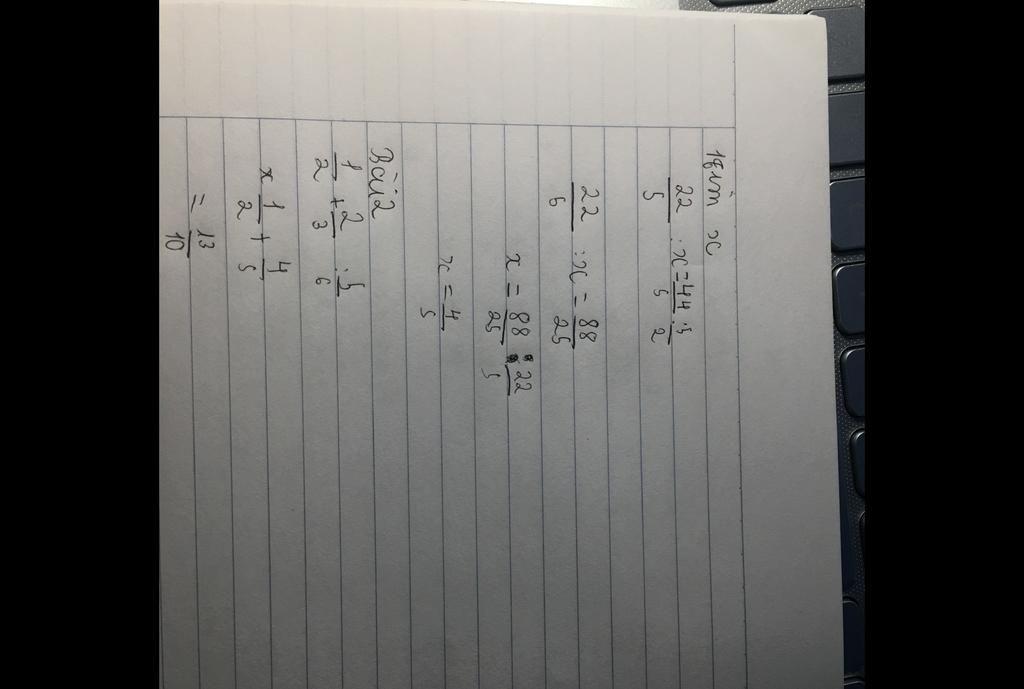 1 tìm x
22/5 : x = 44/5 : 5/2
22/6 : x = 88/25
x = 88/25 : 22/5
x = 4/5
Bài 2
1/2 + 2/3 : 5/6
x 1/2 + 4/5
= 13/10